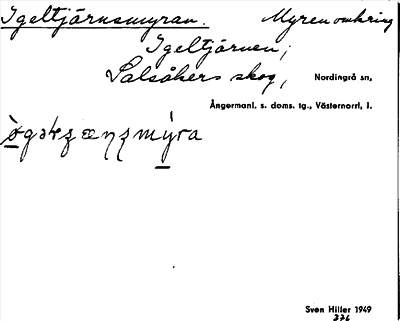 Igeltjärnsmyran. Myren omkring
Igeltjärnen,
Salsåkers skog, Nordingrå sn,
Ångermanl. s. doms. tg., Västernorrl. l.
Sven Hiller 1949
336